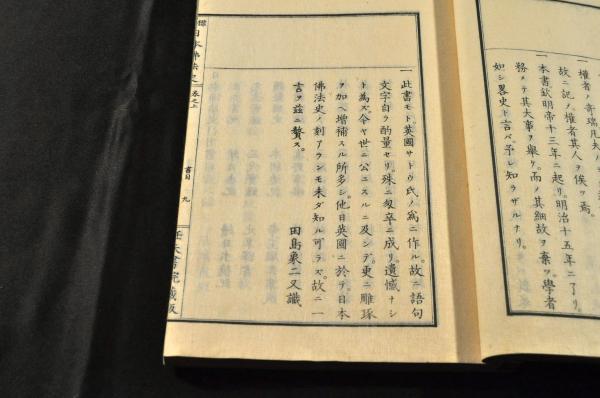 權者ノ奇瑞凡夫ノ
故ニ記ノ權者其人ヲ俟ツ焉。
一 本書欽明帝十三年ニ起リ。明治十五年ニ了リ。
務メテ其大事ヲ擧ケ。而ノ其細故ヲ棄ツ。學者
如シ畧史ト言バ。予レ知ラザルナリ。
一 此書モト。英國サトウ氏ノ爲ニ作ル。故ニ語句
文字自ラ酌量セリ。殊ニ匆卒ニ成リ。遺憾ナシ
ト爲ズ。今ヤ世ニ公ニスルニ及シデ。更ニ雕琢
ヲ加ヘ增補スル所多シ。他日英國ニ於テ日本
佛法史ノ刻アランモ未ダ知ル可ラズ。故ニ一
言ヲ茲ニ贅ス。
田島象二又識
日本佛法史 卷之上
書目 九
任天書院藏版